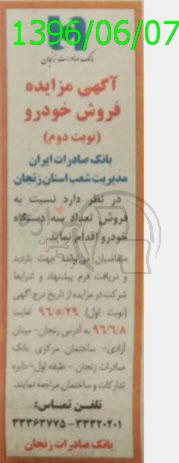 1396/06/07
بانک صادرات زنجان
آگهی مزایده
فروش خودرو
(نوبت دوم)
بانک صادرات ایران
مدیریت شعب استان زنجان
در نظر دارد نسبت به
فروش تعداد سه دستگاه
خودرو اقدام نماید.
متقاضیان می‌توانند جهت بازدید
و دریافت فرم پیشنهاد و شرایط
شرکت در مزایده از تاریخ درج آگهی
(نوبت اول) ۹۶/۵/۲۹ لغایت
۹۶/۶/۸ به آدرس زنجان- میدان
آزادی- ساختمان مرکزی بانک
صادرات زنجان - طبقه اول- دایره
تدارکات و ساختمان مراجعه نمایند.
تلفن تماس:
۳۳۳۶۳۷۷۵-۳۳۳۲۰۲۰۱
بانک صادرات زنجان